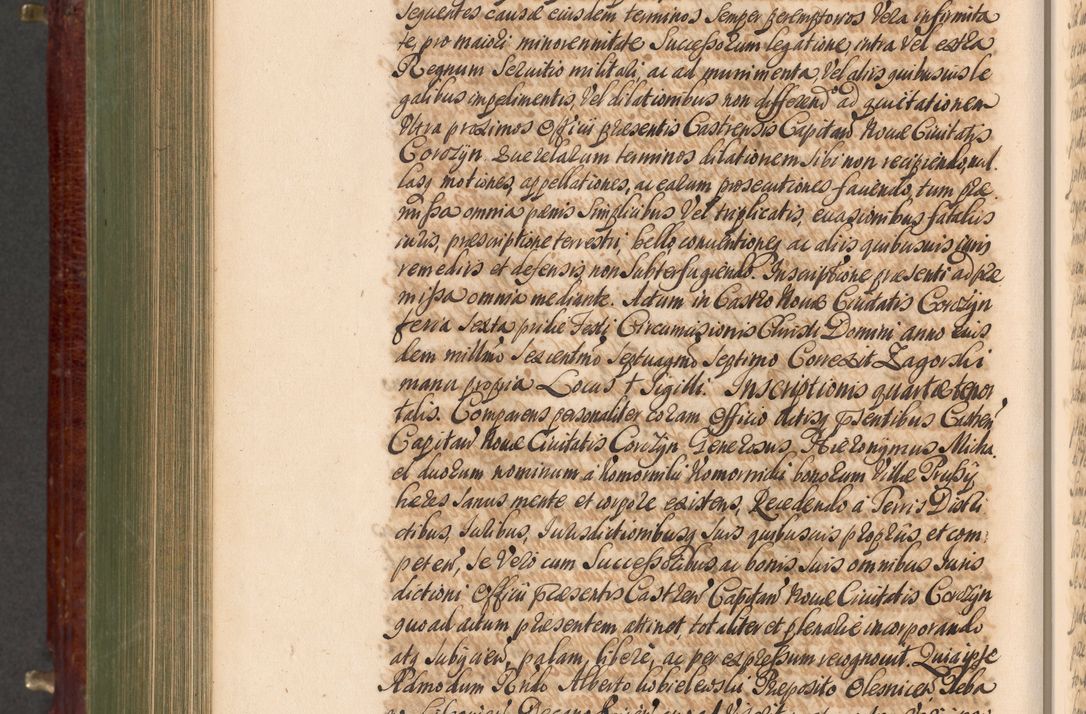 sequentes causæ eiusdem terminos semper peremptorios Vera infirmita
te, pro maiori minorennitate Successorum legatione intra vel extra
Regnum Servitio militali, ac ad munimenta, Vel aliis quibusuis le
galibus impedimentis, Vel dilationibus non differend' ad quitationem
Vltra proximos Officii præsentis Castrensis Capitan' Novæ Ciuitatis
Corczÿn Querelarum terminos dilationem sibi non recipiendo, nul
lasq motiones, appellationes, ac earum prosecutiones fauendo, tum præ
missa omnia pænis Simplicibus Vel triplicatis, euasionibus fatalis
iuris, præscriptione terrestri, bello conuentioneq ac aliis quibusuis iuris
remediis et defensis, non Subterfugiendo. Inscriptione præsenti ad præ
missa omnia mediante. Actum in Castro Novæ Ciuitatis Corczÿn
feria Sexta pridie Festi Circumcisionis Christi Domini anno eius
dem millmo Sexcentmo Septuagmo Septimo Correxit Zagorski
manu propria Locus + Sigilli. Inscriptionis quartæ tenor
talis. Comparens personaliter coram Officio Actisq psentibus Castren'
Capitan' Novæ Ciuitatis Corczÿn Generosus Hieronÿmus Micha
el duorum nominum a Komorniki Komornicki bonorum Villæ Prusÿ
hæres Sanus mente et corpore existens, Recedendo a Terris Distri
ctibus, Iuribus, Iurisdictionibusq Suis quibusuis propriis, et com
peten', Se Vero cum Successoribus ac bonis Suis omnibus Iuris
dictioni Officii præsentis Castren' Capitan' Novæ Ciuitatis Corczÿn
quoad actum præsentem attinet, totaliter et plenarie incorporando
atq Subiicien', palam, libere, ac per expressum recognouit. Quia ipse
Admodum Rndo Alberto Kobielewski Præposito Olesnicen' Pleba